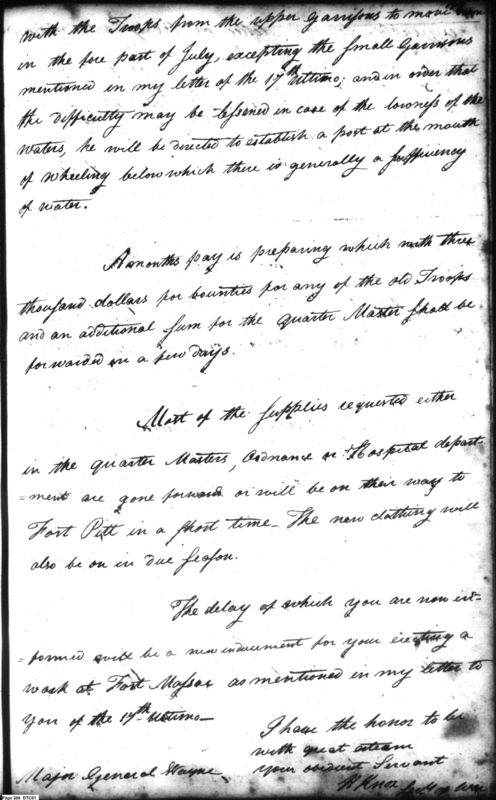 with the Troops from the upper Garrisons to move
in the fore part of July, excepting the small Garrisons
mentioned in my letter of the 17th Ultimo; and in order that
the difficulty may be lessened in case of the lowness of the
Waters, he will be directed to establish a post at the mouth
of Wheeling below which there is generally a sufficiency
of water.
A months pay is preparing which with three
thousand dollars for bounties for any of the old Troops
and an additional sum for the Quarter Master shall be
forwarded in a few days.
Most of the supplies requested either
in the Quarter Masters, Ordnance or Hospital depart-
=ment are gone forward or will be on their way to
Fort Pitt in a short time_ The new clothing will
also be on in due season.
The delay of which you are now in-
=formed will be a new inducement for your erecting a
work at Fort Massac as mentioned in my letter to
you of the 17th Ultimo_
I have the honor to be
with great esteem
your obedient Servant
Major General Wayne
H Knox
Page 298 DTC01